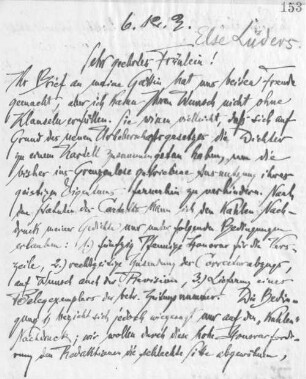 153
6. 12. 2.
Else Lüders
Sehr geehrtes Fräulein!
Ihr Brief an meine Gattin hat uns beiden Freude
gemacht, aber ich kann Ihren Wunsch nicht ohne
Klauseln erfüllen. Sie wissen vielleicht, daß sich auf
Grund des neuen Urheberrechtsgesetzes die Dichter
zu einem Kartell zusammengetan haben, um die
bisher ins Grenzenlose getriebene Ausnutzung ihres
geistigen Eigentums fernerhin zu verhindern. Nach
den Satzungen des Cartells kann ich den Nach-
druck meiner Gedichte nur unter folgenden Bedingungen
erlauben: 1.) fünfzig Pfennige Honorar für die Vers-
zeile, 2.) rechtzeitige Zusendung der Correcturabzugs,
auf Wunsch auch der Revision, 3.) Lieferung eines
Belegexemplars der betr. Zeitungsnummer. Die Bedin-
gung 1 bezieht sich jedoch nur auf den
Nachdruck; wir wollen durch diese hohe Honorarforde-
rung den Redaktionen die schlechte Sitte abgewöhnen,